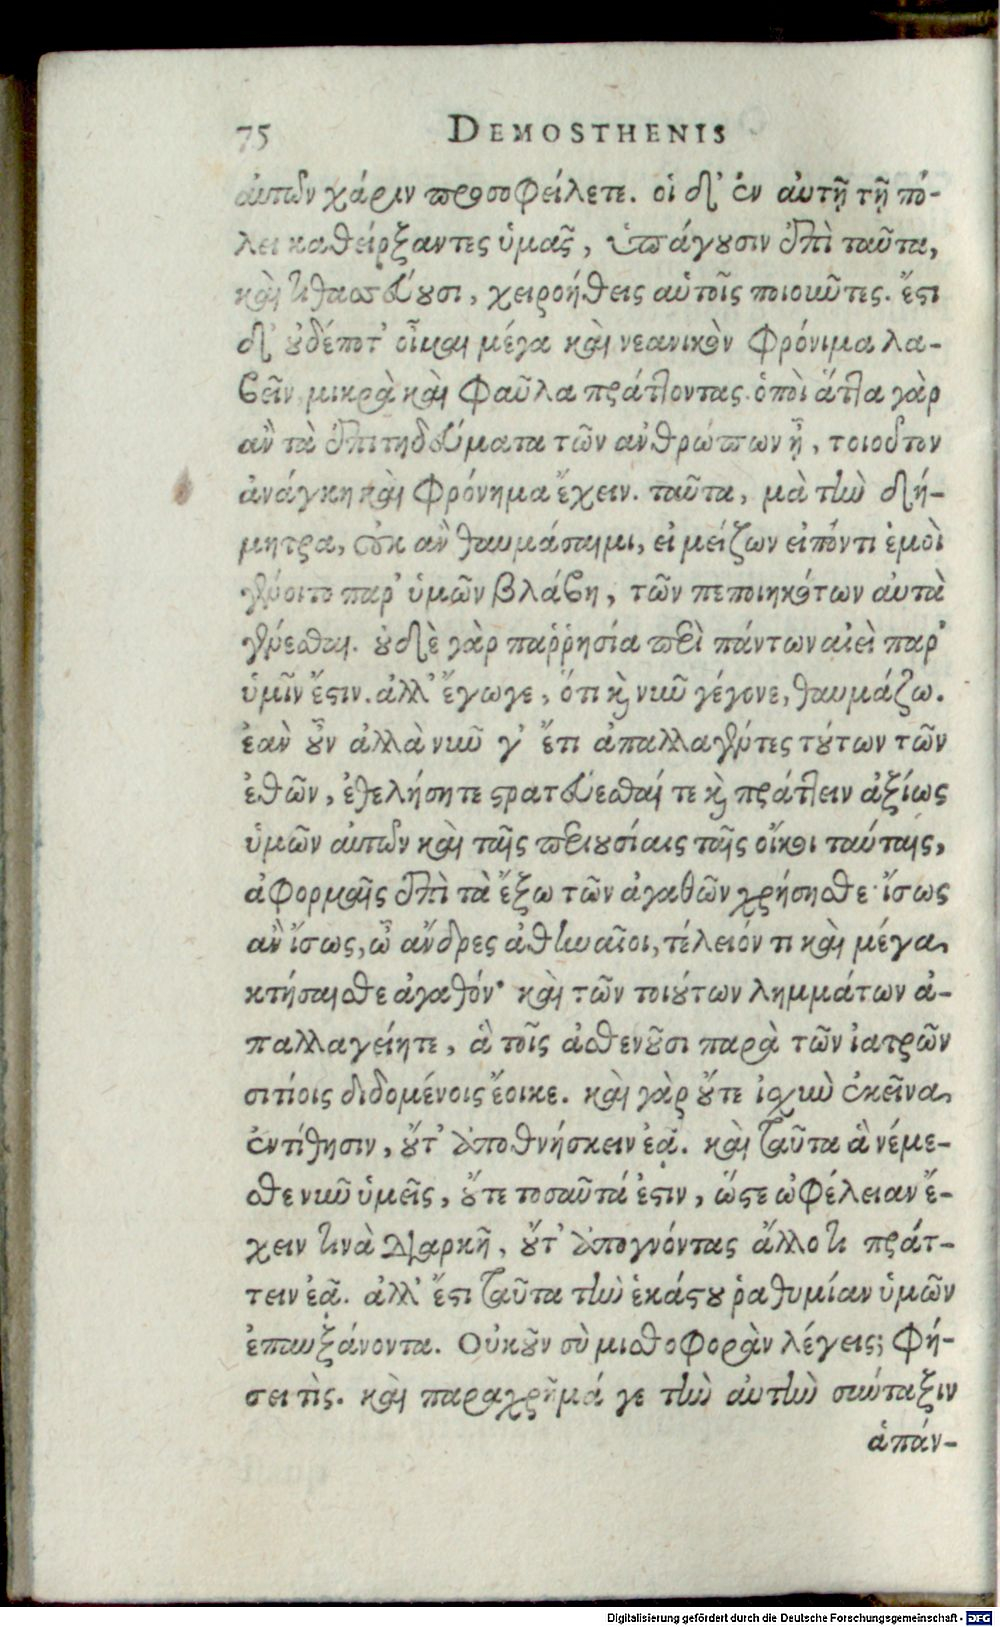 75 DEMOSTHENIS
αὐτῶν χάριν προσοφείλετε. οἱ δ' ἐν αὐτῇ τῇ πό-
λει καθείρξαντες ὑμᾶς, ὑπάγουσιν ἐπὶ ταῦτα,
καὶ τιθασεύουσι, χειροήθεις αὑτοῖς ποιοῦντες. ἔστι
δ' οὐδέποτ' οἶμαι μέγα καὶ νεανικὸν φρόνιμα λα-
βεῖν μικρὰ καὶ φαῦλα πράττοντας. ὁποὶ ἄττα γὰρ
ἂν τὰ ἐπιτηδεύματα τῶν ανθρώπων ᾖ, τοιοῦτον
ἀνάγκη καὶ φρόνημα ἔχειν. ταῦτα, μὰ τὴν Δή-
μητρα, οὐκ ἂν θαυμάσαιμι, εἰ μείζων εἰπόντι ἐμοὶ
γένοιτο παρ' ὑμῶν βλάβη, τῶν πεποιηκότων αὐτὰ
γενέσθαι. οὐδὲ γὰρ παῤῥησία περὶ πάντων αἰεὶ παρ'
ὑμῖν ἔστιν. ἀλλ' ἔγωγε, ὅτι καὶ νῦν γέγονε, θαυμάζω.
ἐὰν οὖν ἀλλὰ νῦν γ' ἔτι ἀπαλλαγέντες τούτων τῶν
ἐθῶν, ἐθελήσητε στρατεύεσθαί τε καὶ πράττειν ἀξίως
ὑμῶν αὐτῶν καὶ ταῖς περιουσίαις ταῖς οἴκοι ταύταις,
ἀφορμαῖς ἐπὶ τὰ ἔξω τῶν ἀγαθῶν χρήσησθε· ἴσως
ἂν ἴσως, ὦ ἄνδρες ἀθηναῖοι, τέλειόν τι καὶ μέγα
κτήσαισθε ἀγαθόν· καὶ τῶν τοιούτων λημμάτων ἀ-
παλλαγείητε, ἃ τοῖς ἀσθενοῦσι παρὰ τῶν ἰατρῶν
σιτίοις διδομένοις ἔοικε. καὶ γὰρ οὔτε ἰσχὺν ἐκεῖνα
ἐντίθησιν, οὔτ' ἀποθνήσκειν ἐᾷ. καὶ ταῦτα ἃ νέμε-
σθε νῦν ὑμεῖς, οὔτε τοσαῦτά ἐστιν, ὥστε ὠφέλειαν ἔ-
χειν τινὰ διαρκῆ, οὔτ' ἀπογνόντας ἄλλο τι πράτ-
τειν ἐᾷ. ἀλλ' ἔστι ταῦτα τὴν ἑκάστου ῥαθυμίαν ὑμῶν
ἐπαυξάνοντα. Οὐκοῦν σὺ μισθοφορὰν λέγεις; φή-
σει τὶς. καὶ παραχρῆμά γε τὴν αὐτὴν σύνταξιν
ἁπάν-
Digitalisierung gefördert durch die Deutsche Forschungsgemeinschaft - DFG